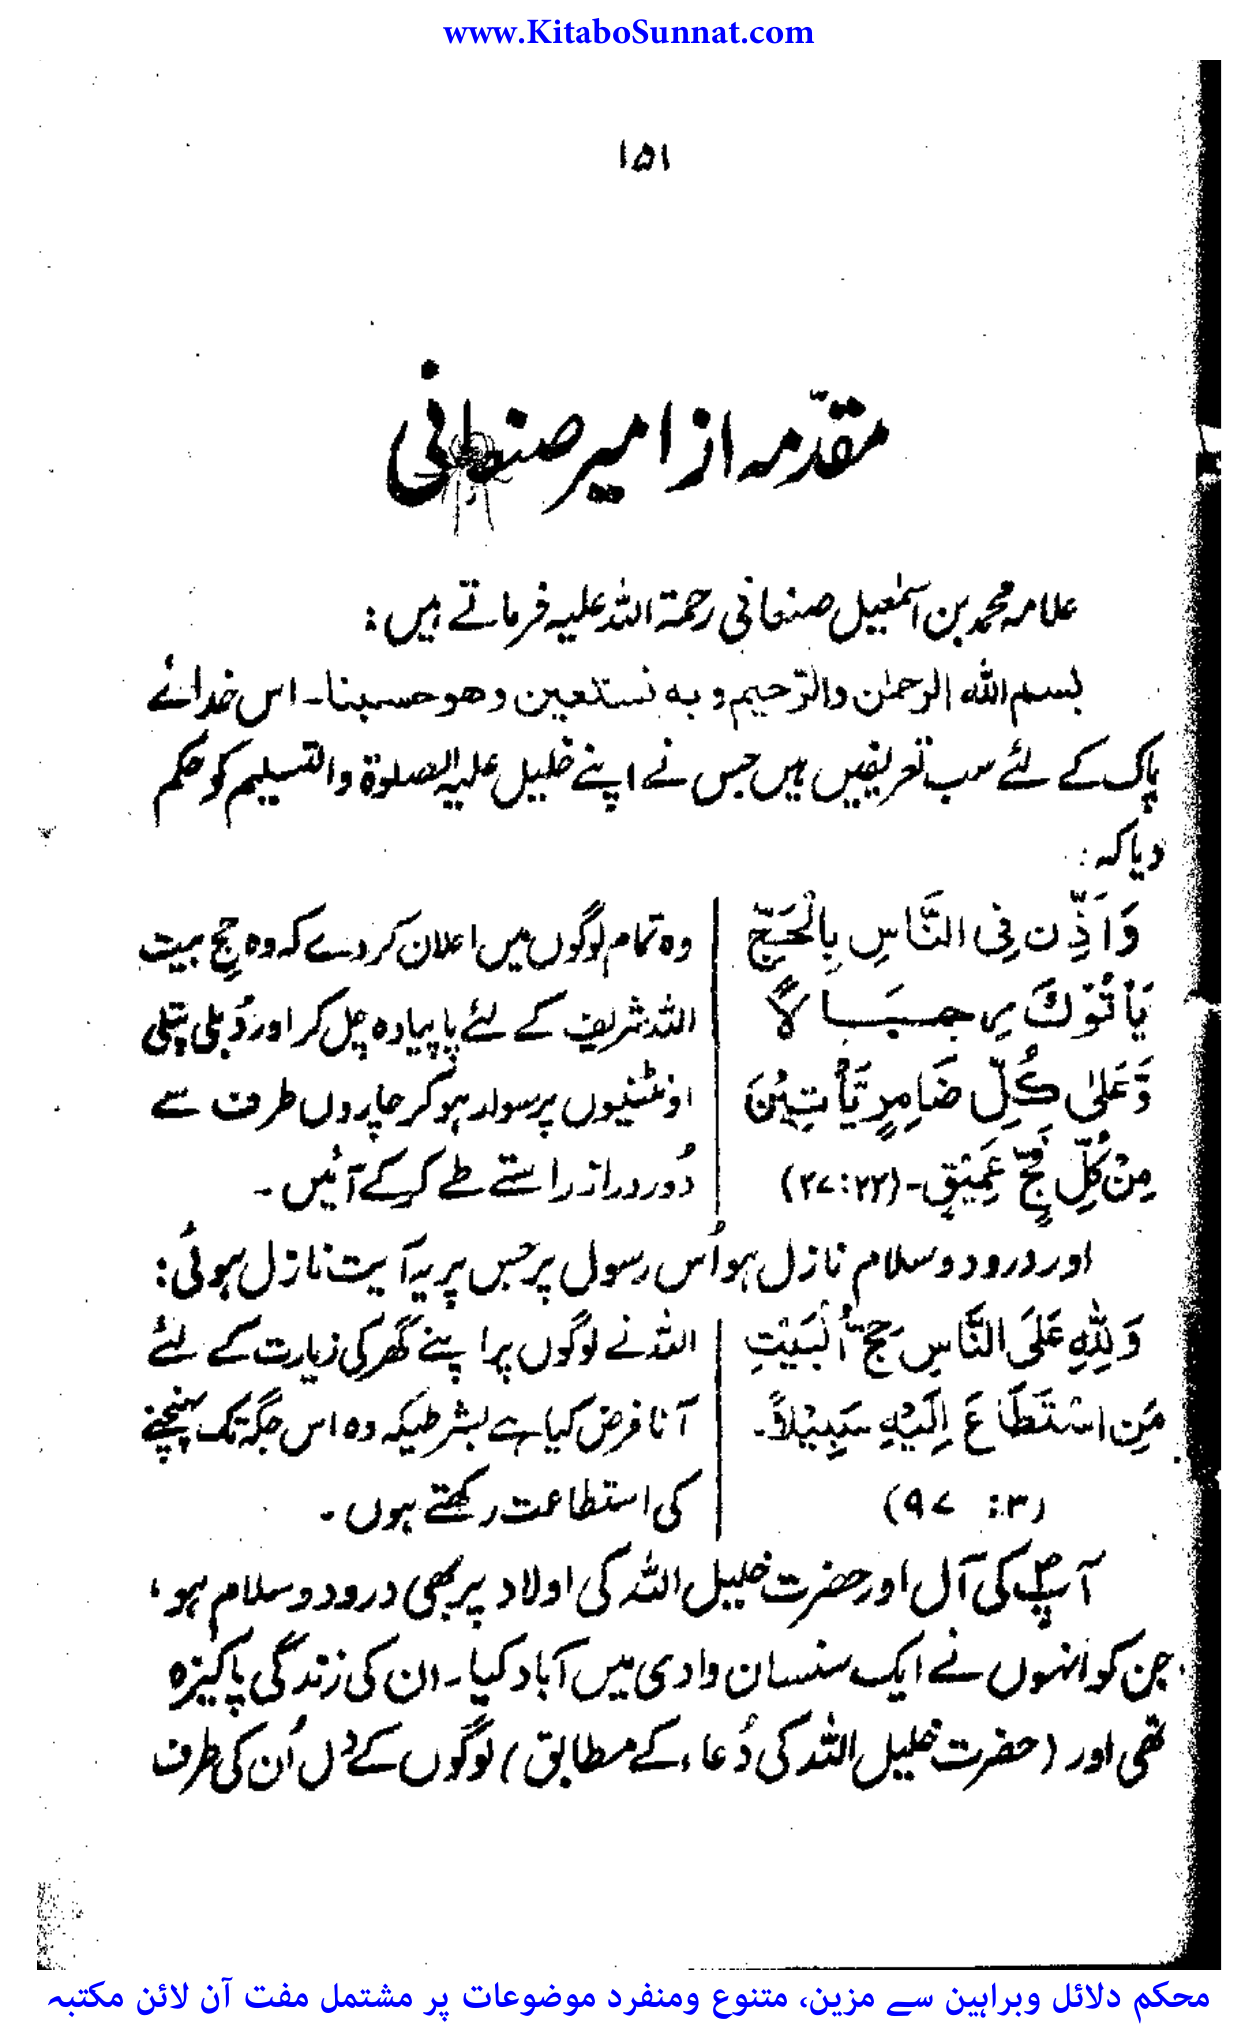 www.KitaboSunnat.com
۱۵۱
مقدّمہ از امیر صنعانی
علامہ محمد بن اسمٰعیل صنعانی رحمۃ اللہ علیہ فرماتے ہیں:
بسم اللہ الرحمٰن والرّحیم و بہ نستعین وھو حسبنا۔ اس خدائے
پاک کے لئے سب تعریفیں ہیں جس نے اپنے خلیل علیہ الصلوٰۃ والتسلیم کو حکم
دیا کہ:
وَاَذِّن فِی النَّاسِ بِالْحَجِّ | وہ تمام لوگوں میں اعلان کردے کہ وہ حجِ بیت
یَأتُوْكَ رِجَالًا | اللہ شریف کے لئے پاپیادہ چل کر اور دُبلی پتلی
وَّعَلٰی کُلِّ ضَامِرٍ یَّأتِیْنَ | اونٹنیوں پر سوار ہو کر چاروں طرف سے
مِنْ کُلِّ فَجٍّ عَمِیْقٍ۔ (۲۲:۲۷) | دُور دراز راستے طے کرکے آئیں۔
اور درود و سلام نازل ہو اُس رسول پر جس پر یہ آیت نازل ہوئی:
وَلِلّٰہِ عَلَی النَّاسِ حِجُّ الْبَیْتِ | اللہ نے لوگوں پر اپنے گھر کی زیارت کے لئے
مَنِ اسْتَطَاعَ اِلَیْہِ سَبِیْلًا۔ | آنا فرض کیا ہے بشرطیکہ وہ اس جگہ تک پہنچنے
(۳: ۹۷) | کی استطاعت رکھتے ہوں۔
آپؐ کی آل اور حضرت خلیل اللہ کی اولاد پر بھی درود و سلام ہو،
جن کو انہوں نے ایک سنسان وادی میں آباد کیا۔ ان کی زندگی پاکیزہ
تھی اور (حضرت خلیل اللہ کی دُعاء کے مطابق) لوگوں کے دل اُن کی طرف
محکم دلائل وبراہین سے مزین، متنوع ومنفرد موضوعات پر مشتمل مفت آن لائن مکتبہ